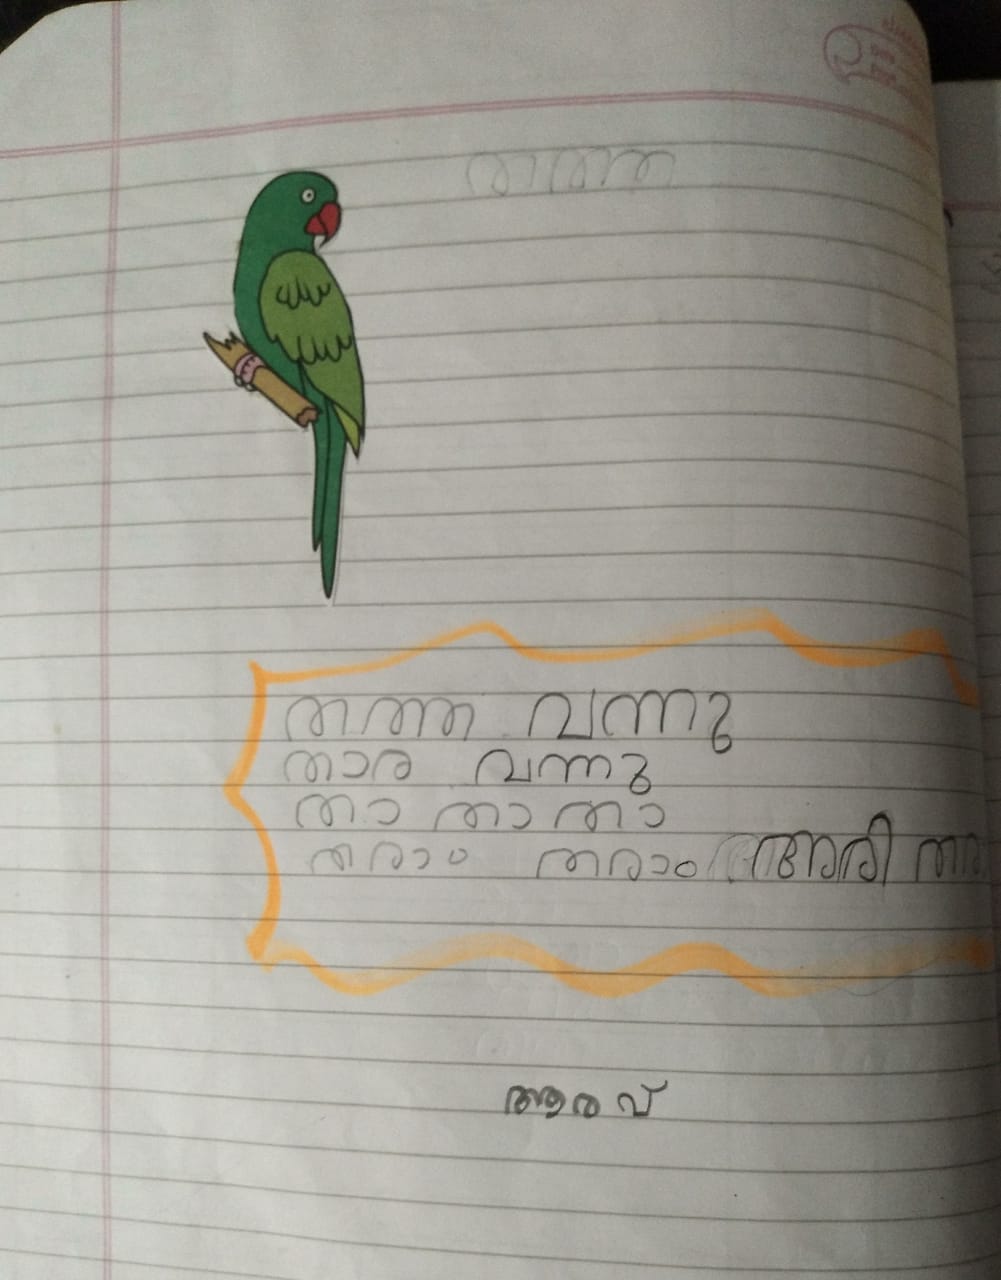 തത്ത
തത്ത വന്നു
താര വന്നു
താ താ താ
തരാം തരാം അരി താ
ആരവ്